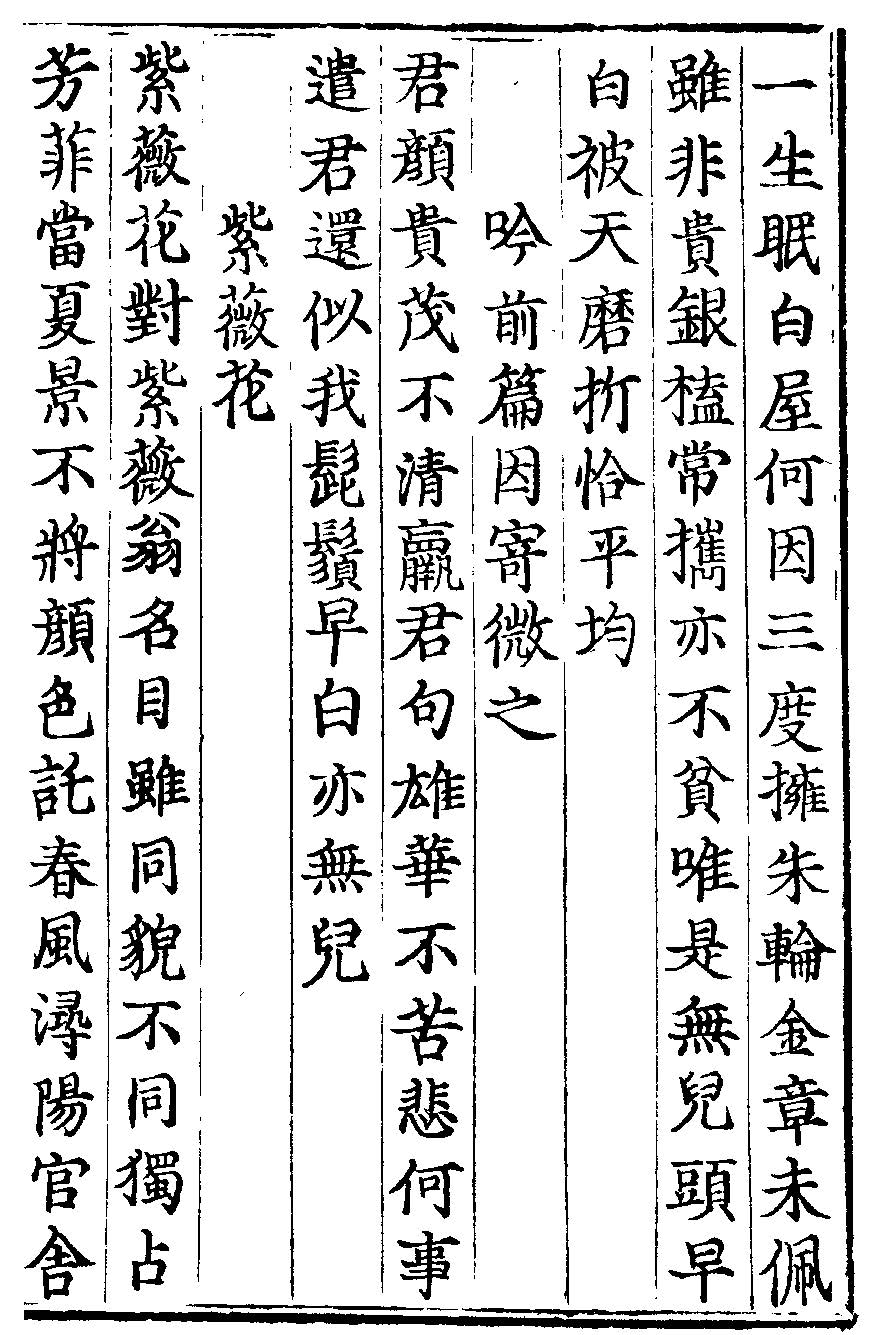 一生眠白屋何因三度擁朱輪金章未佩
雖非貴銀榼常攜亦不貧唯是無兒頭早
白被天磨折恰平均
吟前篇因寄微之
君顔貴茂不清羸君句雄華不苦悲何事
遣君還似我髭鬚早白亦無兒
紫薇花
紫薇花對紫薇翁名目雖同貌不同獨占
芳菲當夏景不將顔色託春風潯陽官舍